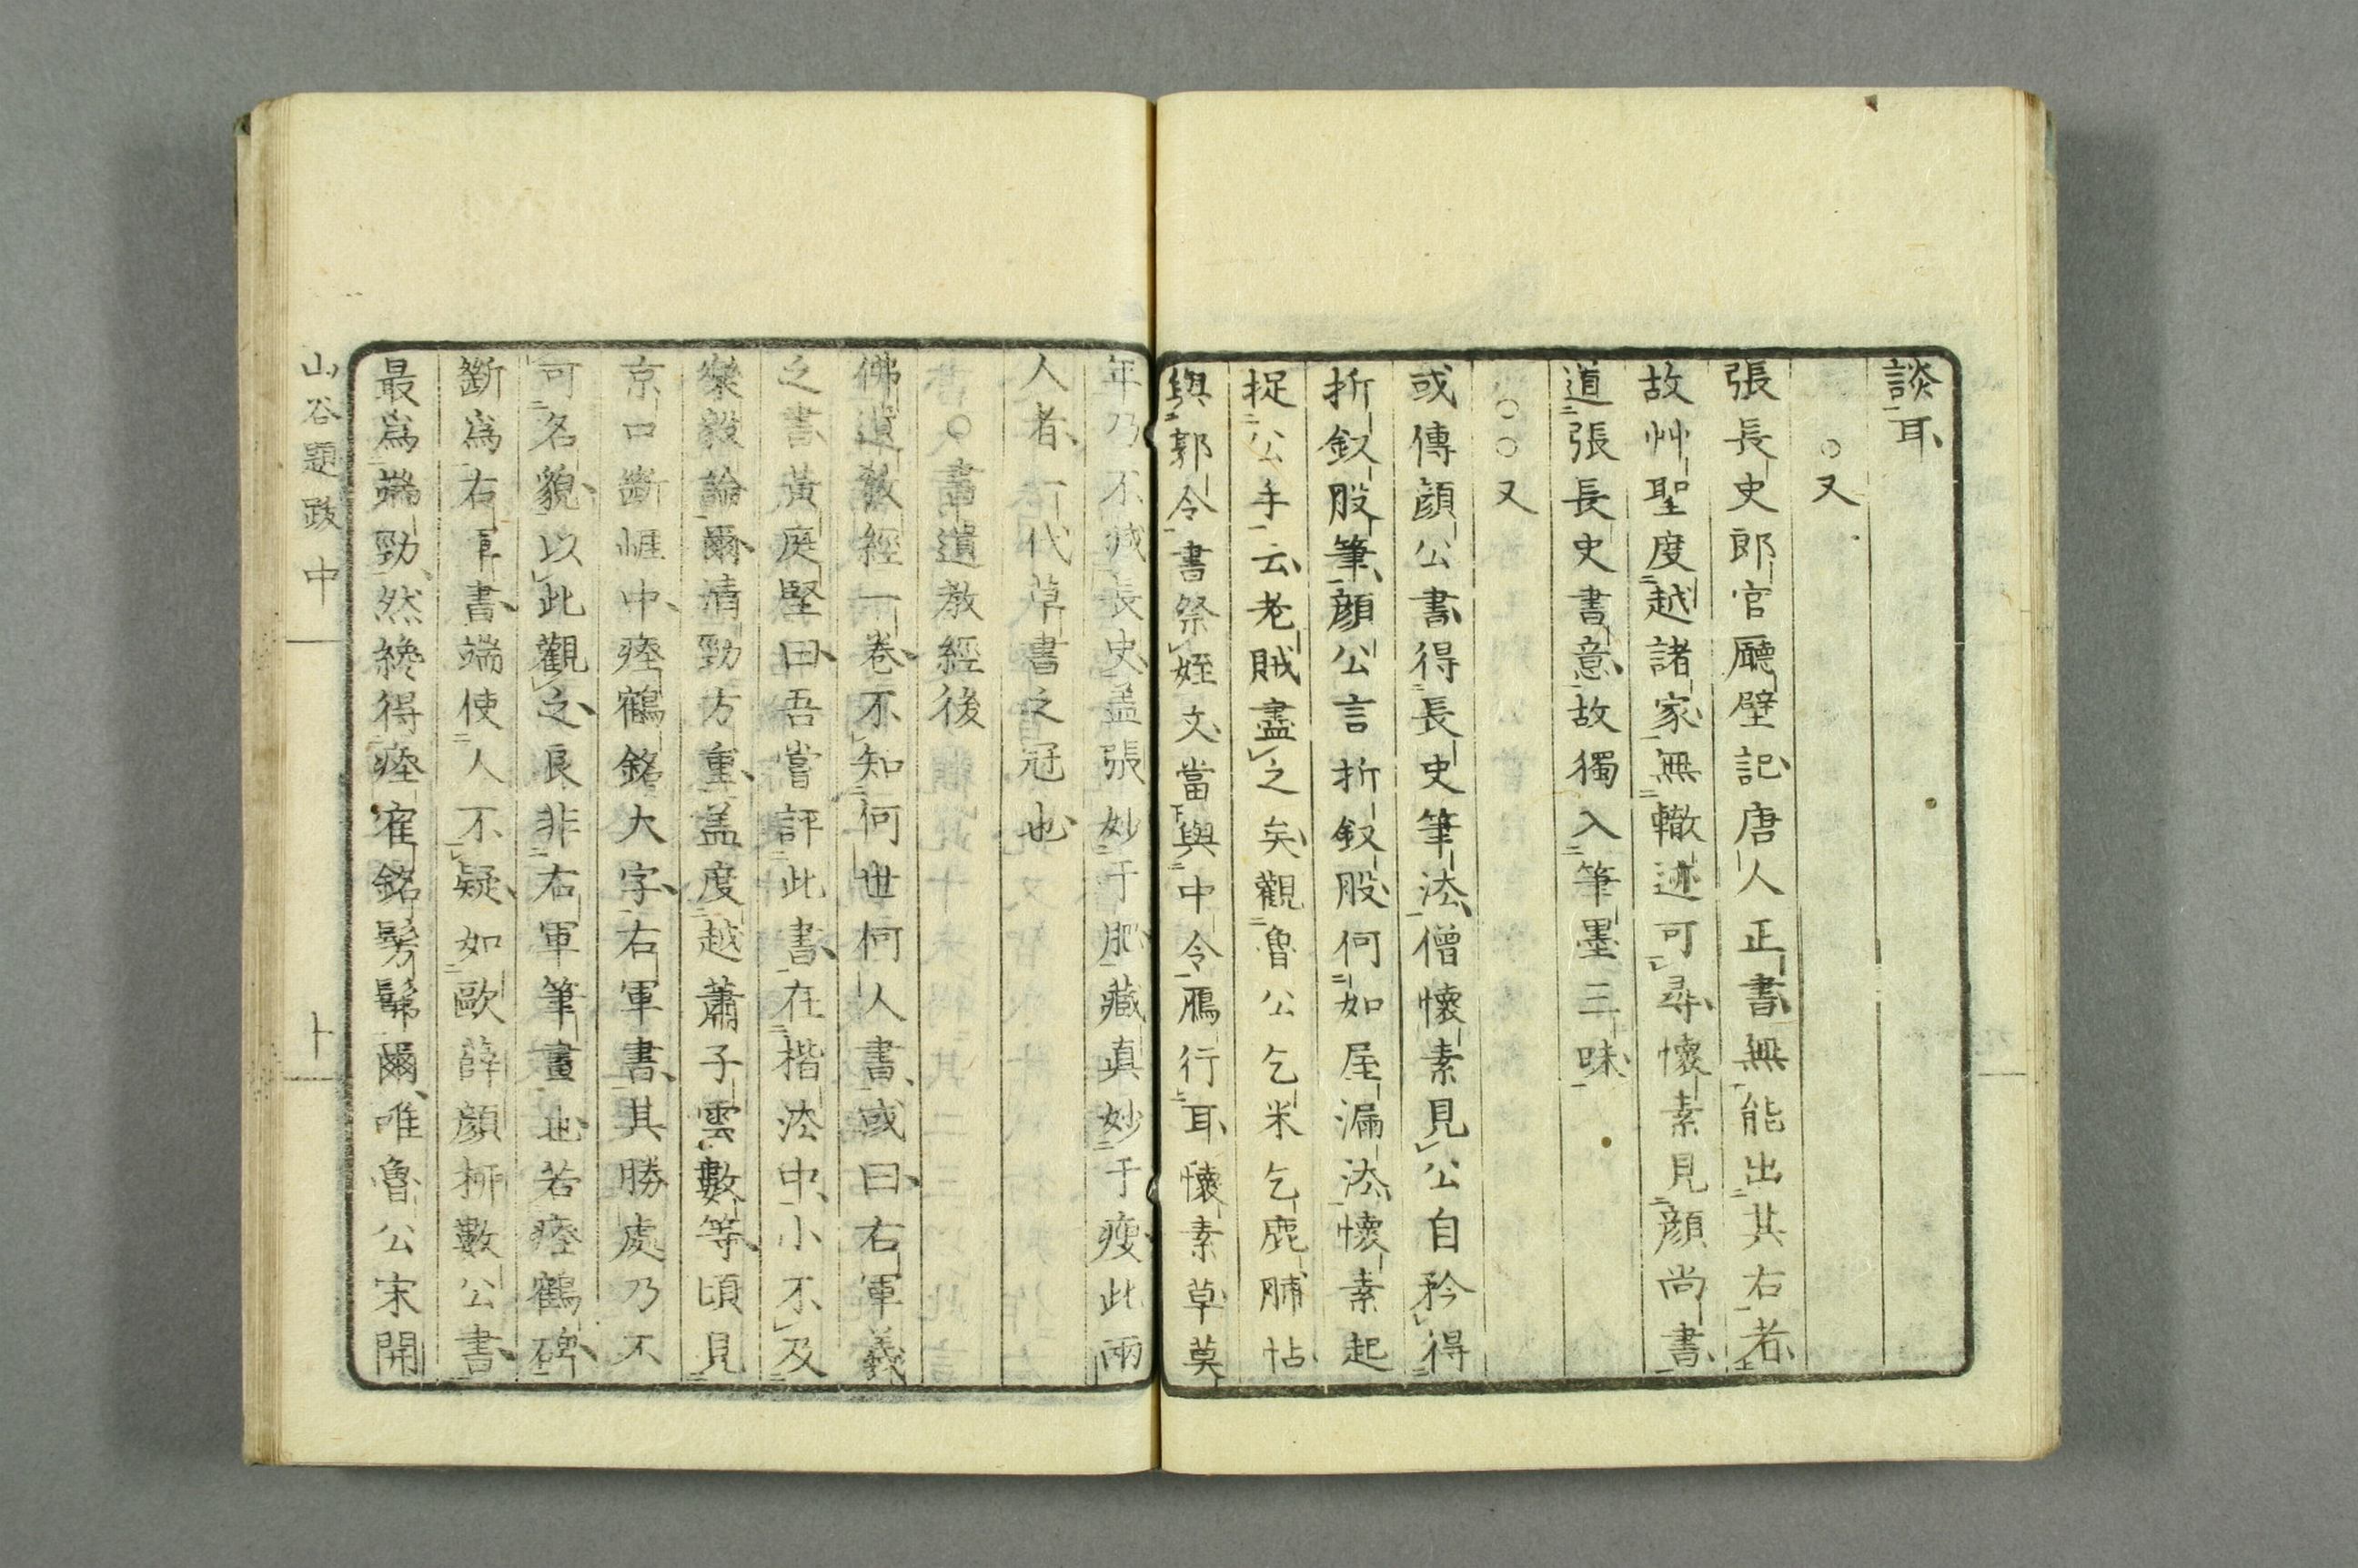 談耳
○又
張長史郎官廳壁記唐人正書無能出其右者
故艸聖度越諸家無轍迹可尋懷素見顔尚書
道張長史書意故獨入筆墨三昧
○○又
或傳顔公書得長史筆法僧懷素見公自矜得
折釵股筆顔公言折釵股何如屋漏法懷素起
捉公手云老賊盡之矣觀魯公乞米乞鹿脯帖
與郭令書祭姪文當與中令鴈行耳懷素草莫
年乃不減長史盖張妙于肥藏真妙于瘦此兩
人者一代草書之冠也
○書遺教經後
佛遺教經一卷不知何世何人書或曰右軍羲
之書黃庭堅曰吾嘗評此書在楷法中小不及
樂毅論爾清勁方重盖度越蕭子雲數等頃見
京口斷崖中瘞鶴銘大字右軍書其勝處乃不
可名貌以此觀之良非右軍筆畫也若瘞鶴碑
斷爲右軍書端使人不疑如歐薛顔柳數公書
最爲端勁然纔得瘞寉銘髣髴爾唯魯公宋開
山谷題跋 中